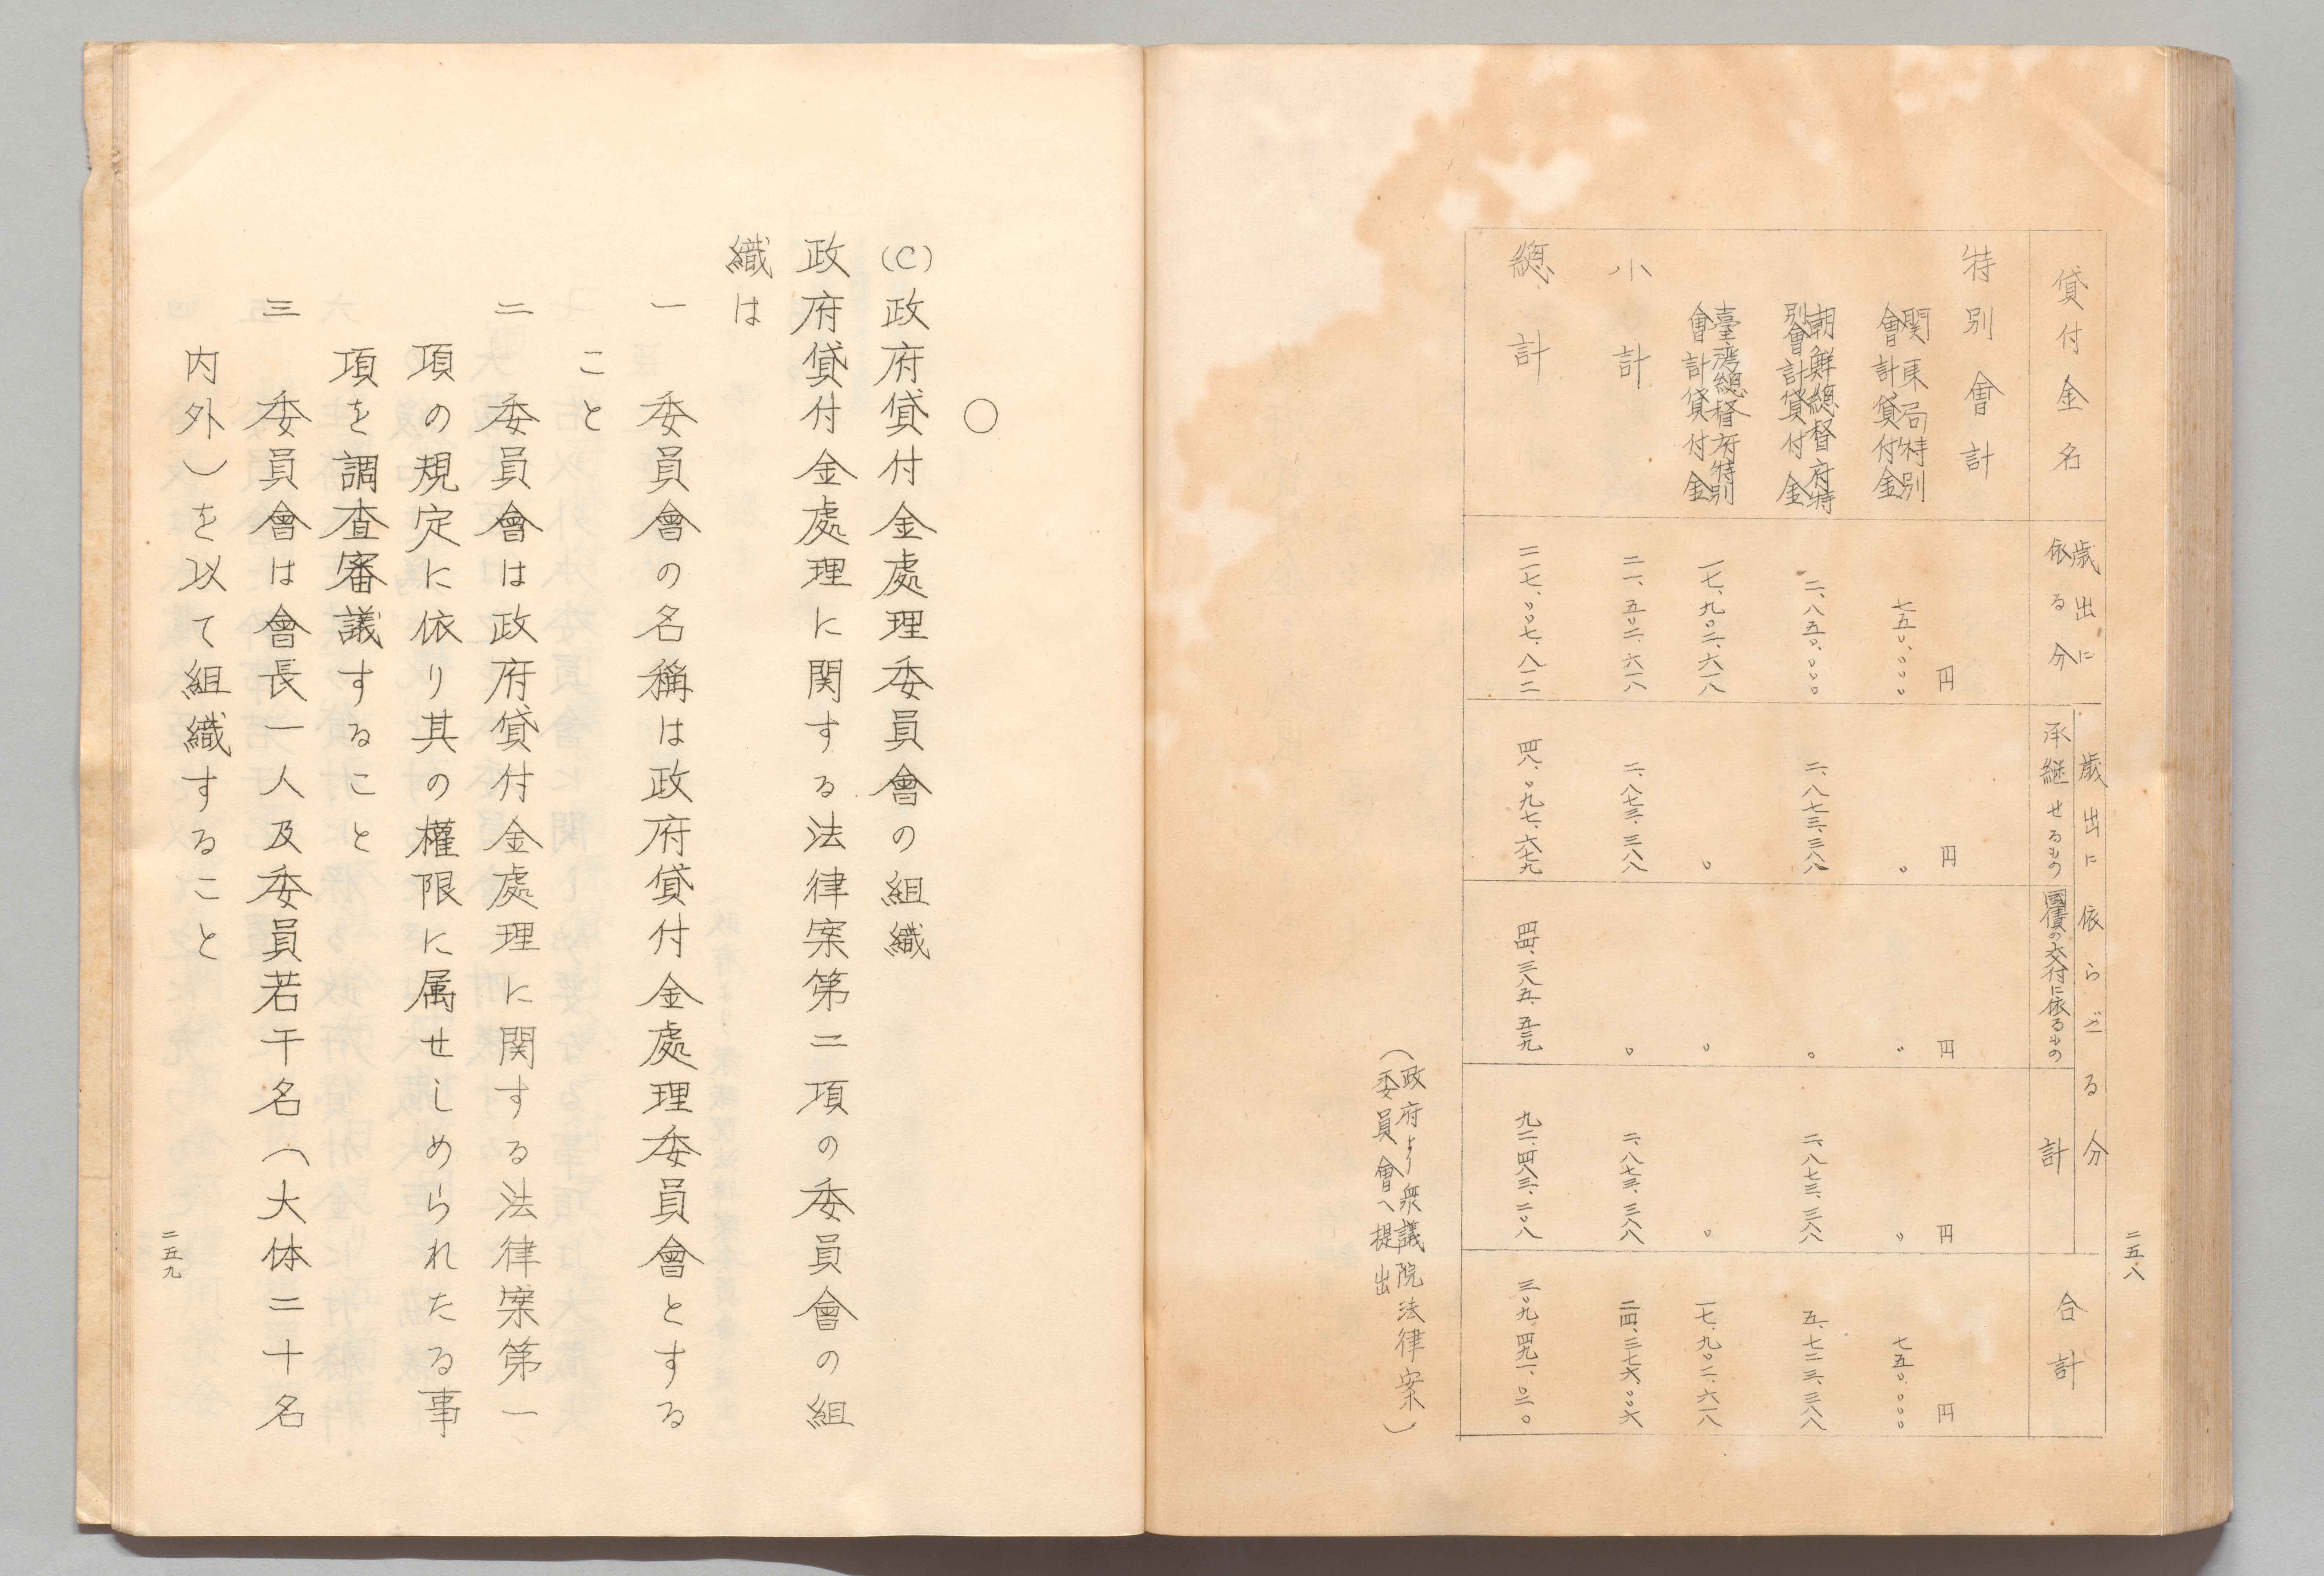 二五八
貸付金名
歳出に
依る分
歳出に依らざる分
承継せるもの
國債の交付に依るもの
計
合計
特別會計
円
円
円
円
円
関東局特別
會計貸付金
七五〇、〇〇〇
〇
〇
〇
七五〇、〇〇〇
朝鮮總督府特
別會計貸付金
二、八五〇、〇〇〇
二、八七三、三八八
〇
二、八七三、三八八
五、七二三、三八八
臺湾總督府特別
會計貸付金
一七、九〇二、六一八
〇
〇
〇
一七、九〇二、六一八
小計
二一、五〇二、六一八
二、八七三、三八八
〇
二、八七三、三八八
二四、三七六、〇〇六
總計
二一七、〇〇七、八一二
四八、〇九七、六七九
四四、三八五、五二九
九二、四八三、二〇八
三〇九、四九一、〇二〇
（政府より衆議院法律案
委員會へ提出）
〇
(C)政府貸付金處理委員會の組織
政府貸付金處理に関する法律案第二項の委員會の組
織は
一　委員會の名稱は政府貸付金處理委員會とする
こと
二　委員會は政府貸付金處理に関する法律案第一
項の規定に依り其の權限に属せしめられたる事
項を調査審議すること
三　委員會は會長一人及委員若干名（大体二十名
内外）を以て組織すること
二五九